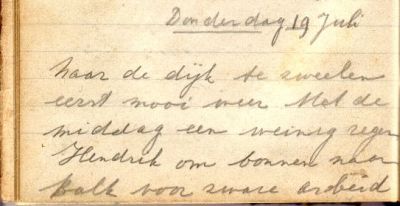 Donderdag 19 Juli
naar de dijk te zweelen
eerst mooi weer Met de
middag een weinig regen
Hendrik om bonnen naar
Balk voor zware arbeid